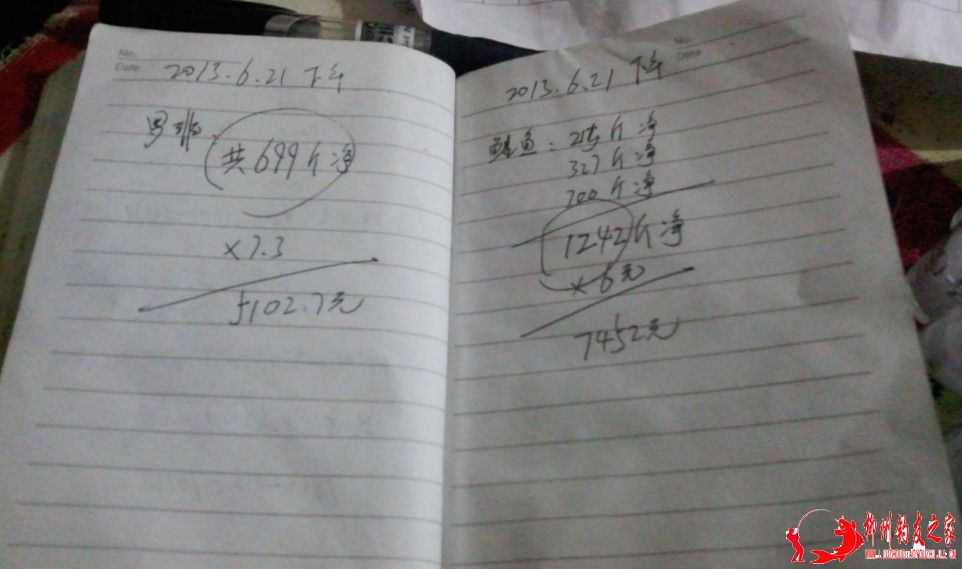 No.
Date
2013.6.21 下午
共699斤净
×7.3
5102.7元
No.
Date
2013.6.21 下午
鱼：215斤净
327斤净
700斤净
1242斤净
×6元
7452元
柳州钓友之家